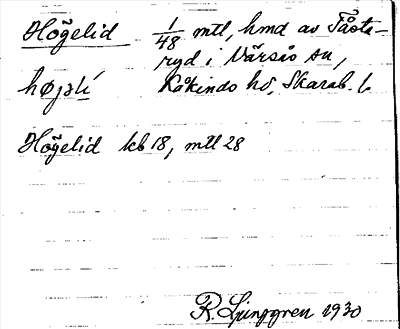 Högelid 1/48 mtl, hmd av Tåsta-
ryd i Vårsås sn,
højlí Kåkinds hd, Skarab. l.
Högelid kb 18, mtl 28
R. Ljunggren 1930